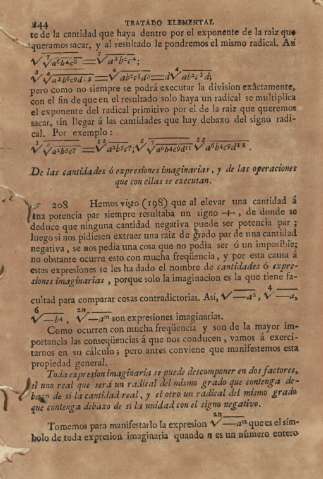 244 TRATADO ELEMENTAL
te de la cantidad que haya dentro por el exponente de la raiz que
queramos sacar, y al resultado le pondremos el mismo radical. Así
pero como no siempre se podrá executar la division exâctamente,
con el fin de que en el resultado solo haya un radical se multiplica
el exponente del radical primitivo por el de la raiz que queremos
sacar, sin llegar á las cantidades que hay debaxo del signo radi-
cal. Por exemplo:
De las cantidades ó expresiones imaginarias, y de las operaciones
que con ellas se executan.
208 Hemos visto (198) que al elevar una cantidad á
una potencia par siempre resultaba un signo +, de donde se
deduce que ninguna cantidad negativa puede ser potencia par;
luego si nos pidiesen extraer una raiz de grado par de una cantidad
negativa, se nos pedia una cosa que no podia ser ó un imposible;
no obstante ocurre esto con mucha freqüencia, y por esta causa á
estas expresiones se les ha dado el nombre de cantidades ó expre-
siones imaginarias, porque solo la imaginacion es la que tiene fa-
cultad para comparar cosas contradictorias. Así,
son expresiones imaginarias.
Como ocurren con mucha freqüencia y son de la mayor im-
portancia las conseqüencias á que nos conducen, vamos á exerci-
tarnos en su cálculo; pero antes conviene que manifestemos esta
propiedad general.
Toda expresion imaginaria se puede descomponer en dos factores,
el uno real que será un radical del mismo grado que contenga de-
baxo de si la cantidad real, y el otro un radical del mismo grado
que contenga debaxo de si la unidad con el signo negativo.
Tomemos para manifestarlo la expresion que es el sím-
bolo de toda expresion imaginaria quando n es un número entero